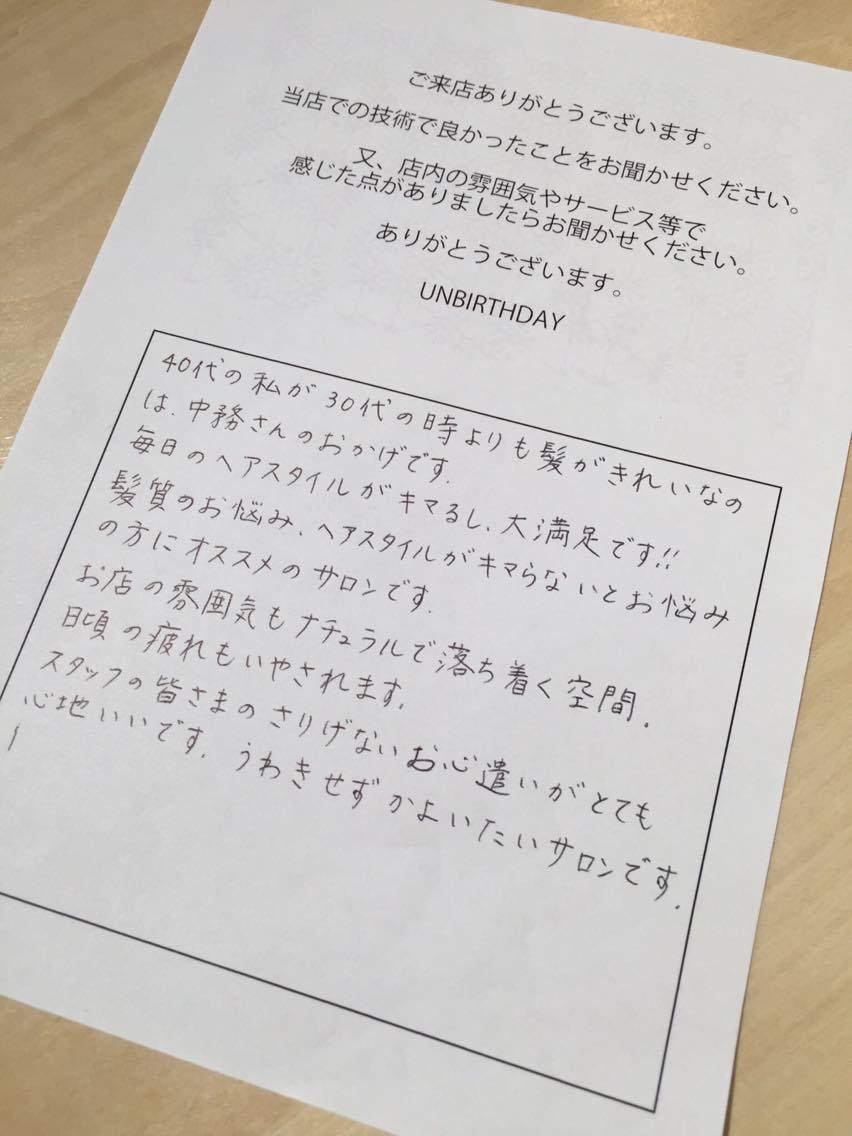 ご来店ありがとうございます。
当店での技術で良かったことをお聞かせください。
又、店内の雰囲気やサービス等で
感じた点がありましたらお聞かせください。
ありがとうございます。
UNBIRTHDAY
40代の私が30代の時よりも髪がきれいなの
は、中務さんのおかげです.
毎日のヘアスタイルがキマるし、大満足です!!
髪質のお悩み、ヘアスタイルがキマらないとお悩み
の方にオススメのサロンです.
お店の雰囲気もナチュラルで落ち着く空間.
日頃の疲れもいやされます.
スタッフの皆さまのさりげないお心遣いがとても
心地いいです. うわきせずかよいたいサロンです.